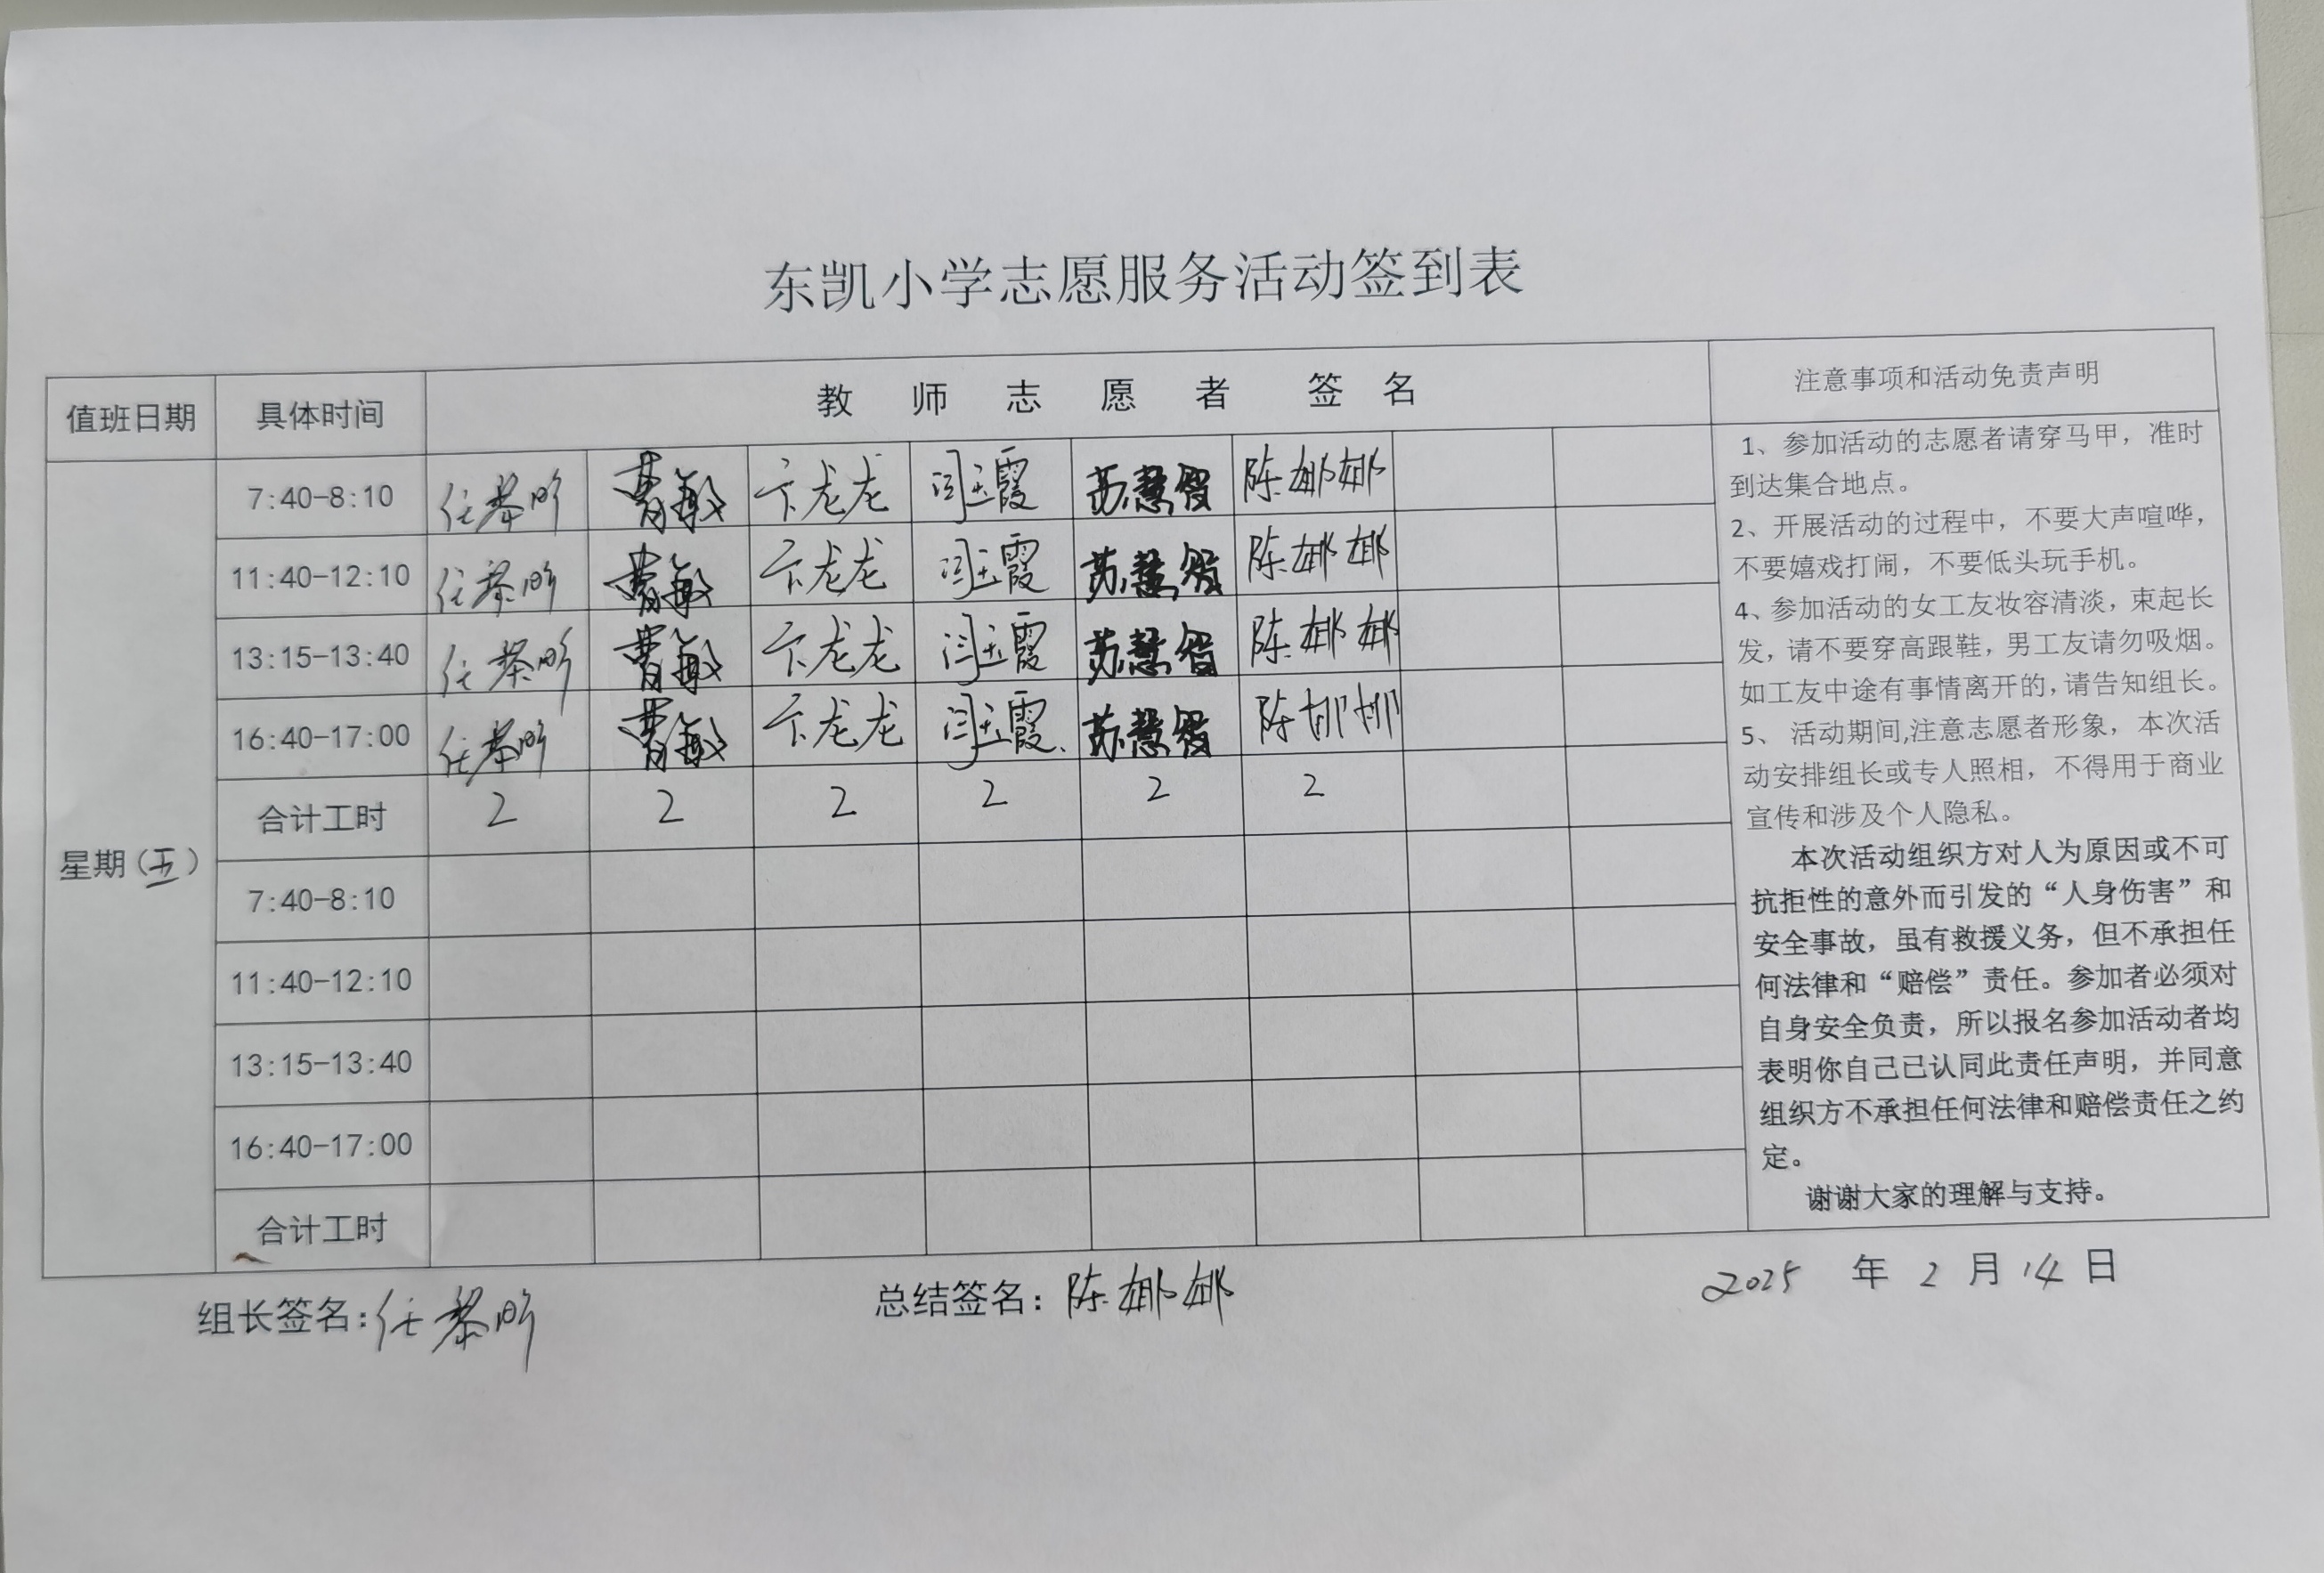 东凯小学志愿服务活动签到表
值班日期 具体时间 教师志愿者签名 注意事项和活动免责声明
星期（五）
7:40-8:10 任黎明 曹敏 卞龙龙 闫玉霞 苏慧智 陈娜娜
11:40-12:10 任黎明 曹敏 卞龙龙 闫玉霞 苏慧智 陈娜娜
13:15-13:40 任黎明 曹敏 卞龙龙 闫玉霞 苏慧智 陈娜娜
16:40-17:00 任黎明 曹敏 卞龙龙 闫玉霞 苏慧智 陈娜娜
合计工时 2 2 2 2 2 2
7:40-8:10
11:40-12:10
13:15-13:40
16:40-17:00
合计工时
1、参加活动的志愿者请穿马甲，准时
到达集合地点。
2、开展活动的过程中，不要大声喧哗，
不要嬉戏打闹，不要低头玩手机。
4、参加活动的女工友妆容清淡，束起长
发，请不要穿高跟鞋，男工友请勿吸烟。
如工友中途有事情离开的，请告知组长。
5、 活动期间,注意志愿者形象，本次活
动安排组长或专人照相，不得用于商业
宣传和涉及个人隐私。
本次活动组织方对人为原因或不可
抗拒性的意外而引发的“人身伤害”和
安全事故，虽有救援义务，但不承担任
何法律和“赔偿”责任。参加者必须对
自身安全负责，所以报名参加活动者均
表明你自己已认同此责任声明，并同意
组织方不承担任何法律和赔偿责任之约
定。
谢谢大家的理解与支持。
组长签名：任黎明 总结签名：陈娜娜 2025 年 2 月 14 日